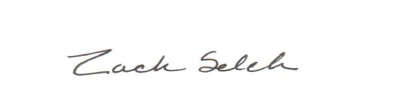 Zach Selch